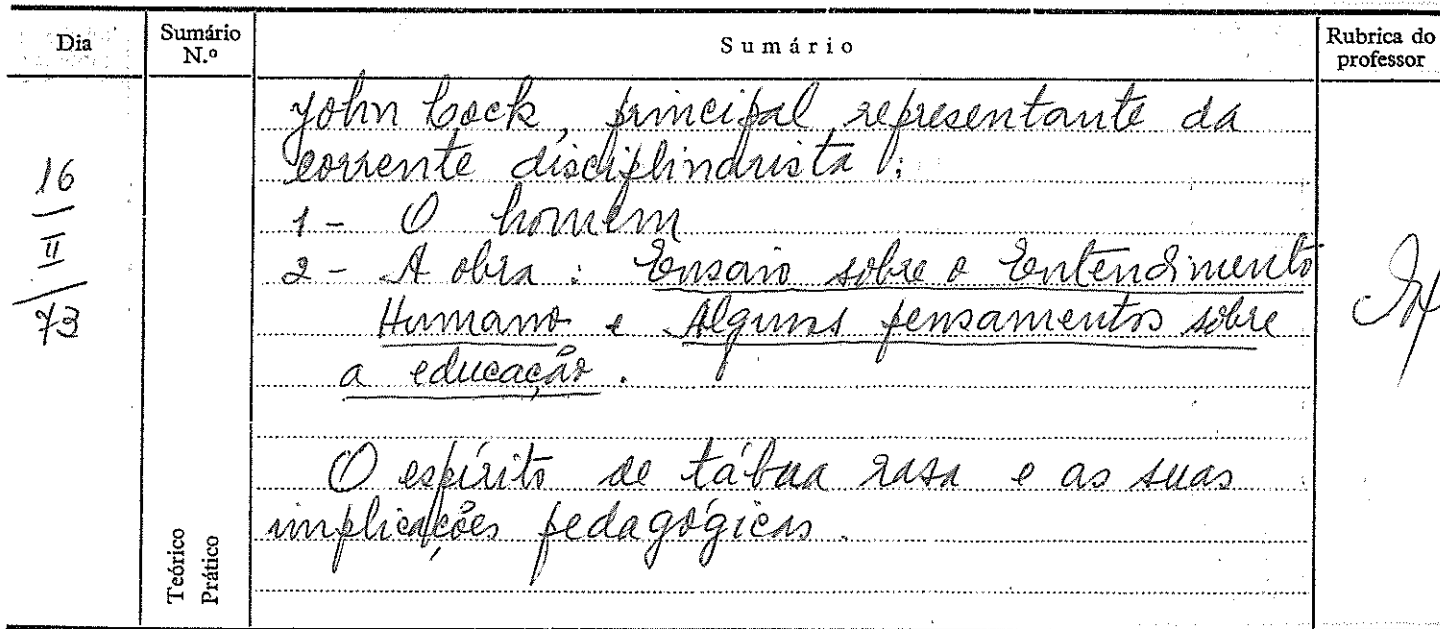 Dia
Sumário N.º
Sumário
Rubrica do professor
16
II
73
John Lock, principal representante da
corrente disciplinarista:
1 - O homem
2 - A obra: Ensaio sobre o Entendimento
Humano e Alguns pensamentos sobre
a educação.
O espírito de tábua rasa e as suas
implicações pedagógicas.
Teórico
Prático